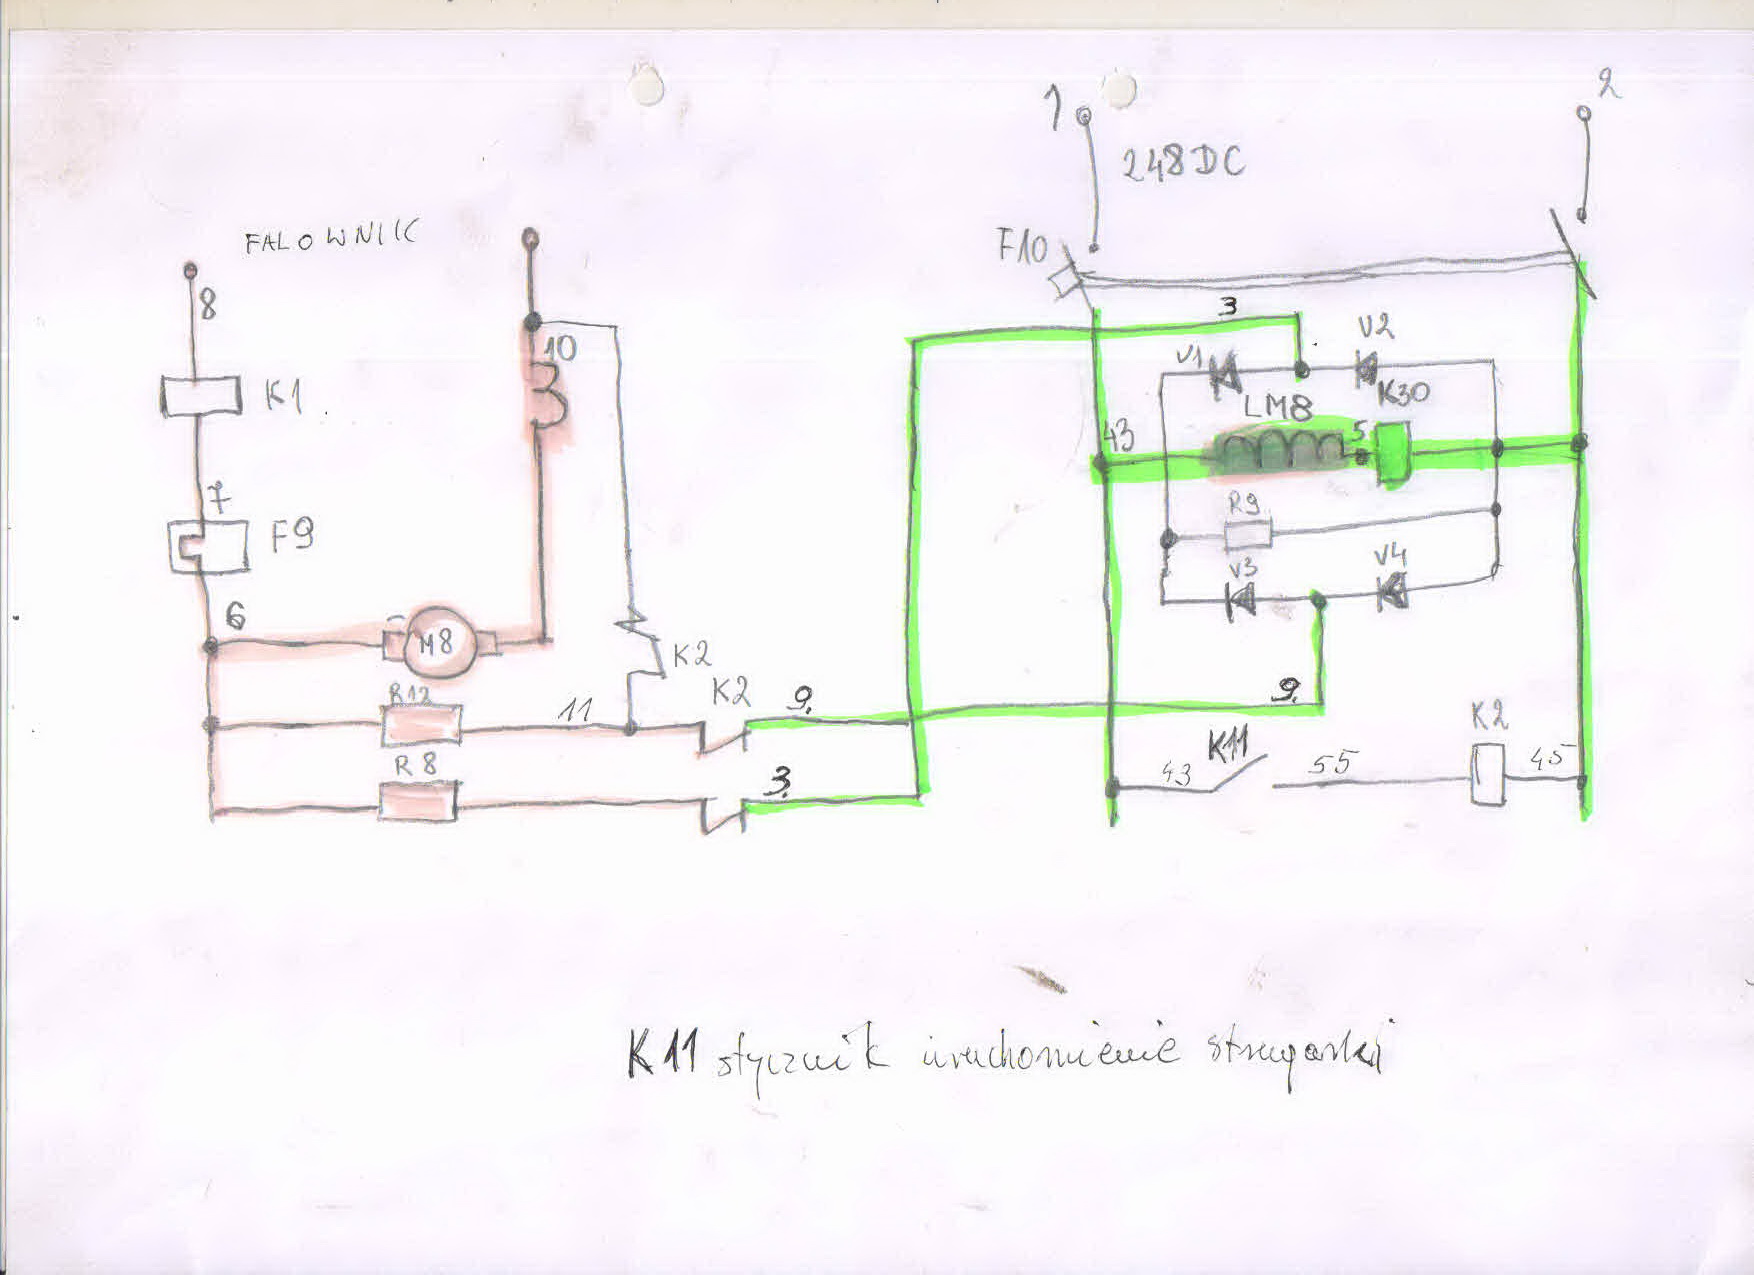 1
2
248DC
FALOWNIK
F10
8
3
V2
10
V1
K30
K1
LM8
43
5
7
R9
F9
V4
V3
6
M8
K2
R12
11
K2
9.
9.
K2
K11
R8
3.
43
55
45
K11 stycznik uruchomienie strugarki